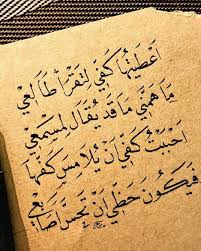 اعطيتها كفي لتقرأ طالعي
ما همني ما قد يقال لمسمعي
احببت كفي ان يلامس كفها
فيكون حظي ان تحس اصابعي